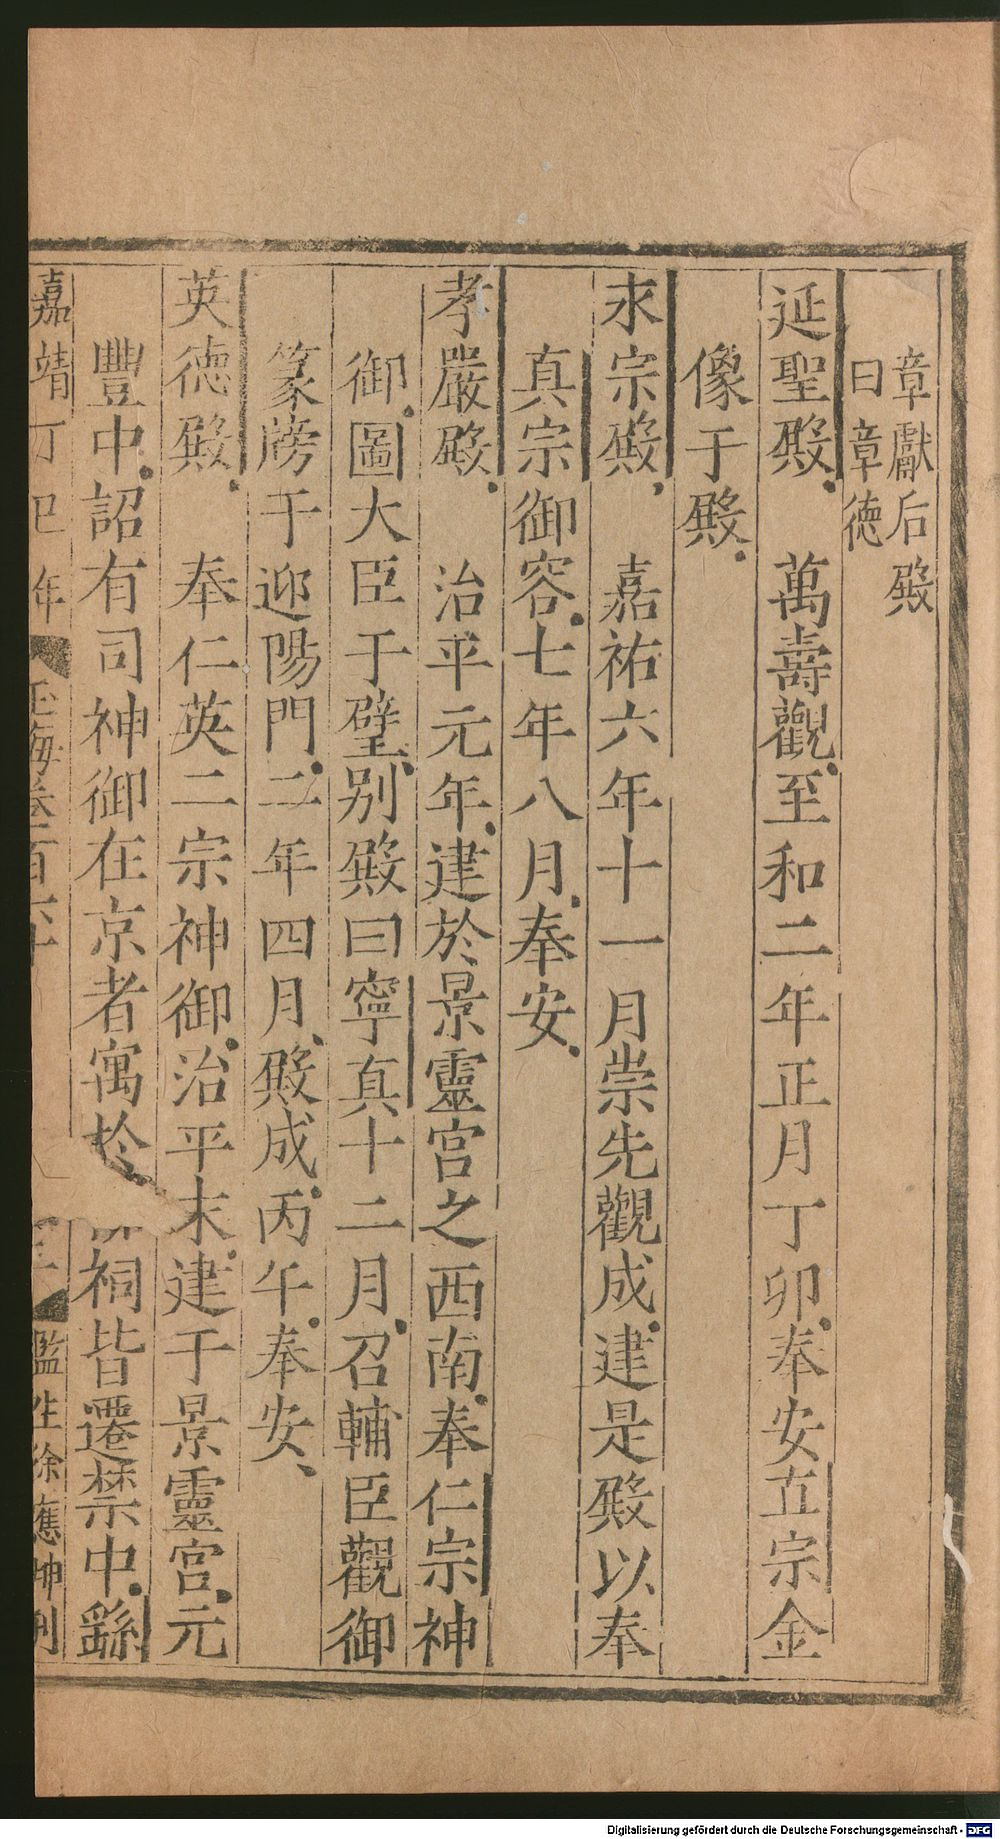 章獻后殿
曰章德
延聖殿 萬壽觀至和二年正月丁卯奉安立宗金
像于殿
永宗殿 嘉祐六年十一月崇先觀成建是殿以奉
真宗御容七年八月奉安
孝嚴殿 治平元年建於景靈宮之西南奉仁宗神
御圖大臣于壁別殿曰寧真十二月召輔臣觀御
篆牓于迎陽門二年四月殿成丙午奉安
英德殿 奉仁英二宗神御治平末建于景靈宮元
豐中詔有司神御在京者寓於祠皆遷禁中繇
嘉靖丁巳年 玉海卷百六十 監生徐應坤刊
Digitalisierung gefördert durch die Deutsche Forschungsgemeinschaft - DFG